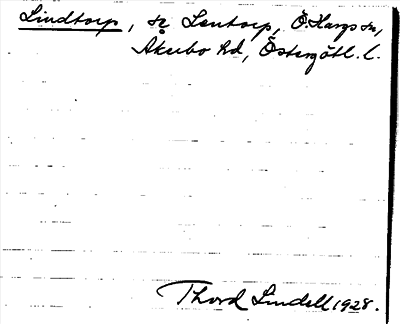 Lindtorp, se Lentorp, Ö. Hargs sn,
Åkerbo hd, Östergötl. l.
Thord Lindell 1928.